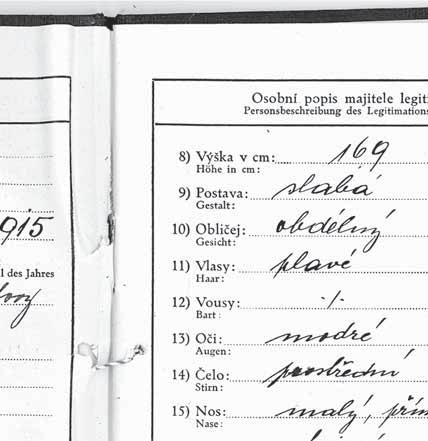 915
l des Jahres
Osobní popis majitele legiti
Personsbeschreibung des Legitimations
8) Výška v cm: 169
Höhe in cm:
9) Postava: slabá
Gestalt:
10) Obličej: obdélný
Gesicht:
11) Vlasy: plavé
Haar:
12) Vousy: ·/·
Bart:
13) Oči: modré
Augen:
14) Čelo: prostřední
Stirn:
15) Nos: malý, přím
Nase: